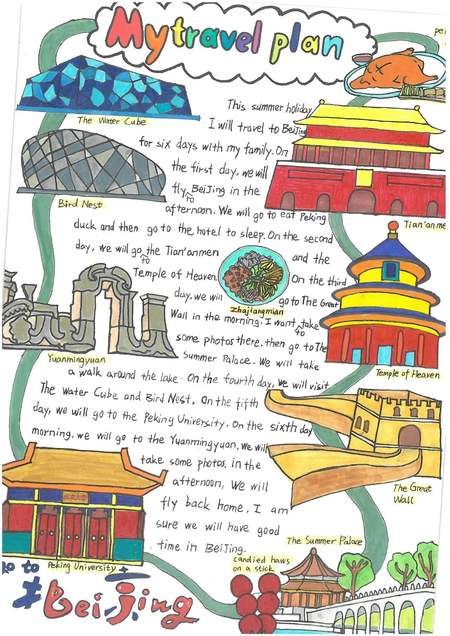 My travel plan
pe
This summer holiday,
I will travel to BeiJing
for six days with my family. On
the first day, we will
fly to BeiJing in the
afternoon. We will go to eat Peking
duck and then go to the hotel to sleep. On the second
day, we will go to the Tian'anmen and the
Temple of Heaven. On the third
day, we will go to The Great
Wall in the morning. I want to take
some photos there, then go to The
Summer Palace. We will take
a walk around the lake. On the fourth day, we will visit
The Water Cube and Bird Nest. On the fifth
day, we will go to the Peking University. On the sixth day
morning, we will go to the Yuanmingyuan, We will
take some photos, in the
afternoon, We will
fly back home, I am
sure we will have good
time in BeiJing.
The Water Cube
Bird Nest
Tian'anme
zhajiangmian
Yuanmingyuan
Temple of Heaven
The Great
Wall
Peking University
The Summer Palace
candied haws
on a stick
go to
BeiJing